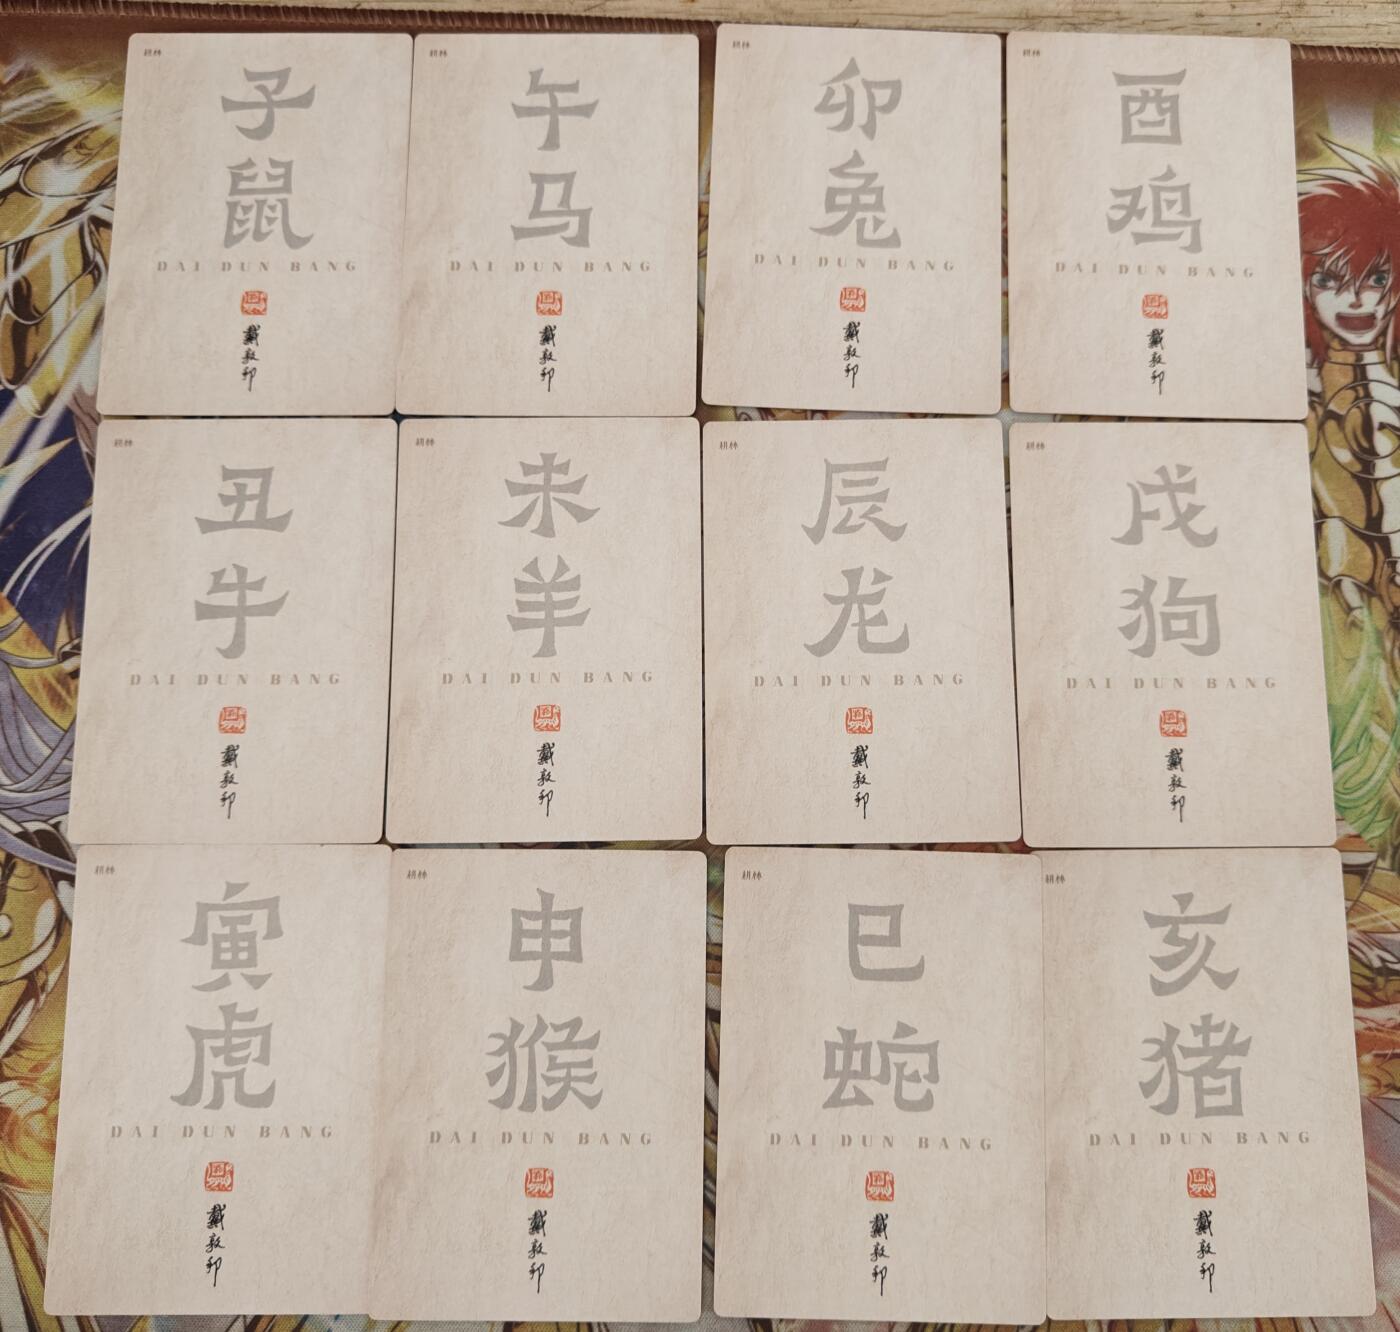 耕林
子
鼠
DAI DUN BANG
戴敦邦
耕林
午
马
DAI DUN BANG
戴敦邦
耕林
卯
兔
DAI DUN BANG
戴敦邦
耕林
酉
鸡
DAI DUN BANG
戴敦邦
耕林
丑
牛
DAI DUN BANG
戴敦邦
耕林
未
羊
DAI DUN BANG
戴敦邦
耕林
辰
龙
DAI DUN BANG
戴敦邦
耕林
戌
狗
DAI DUN BANG
戴敦邦
耕林
寅
虎
DAI DUN BANG
戴敦邦
耕林
申
猴
DAI DUN BANG
戴敦邦
耕林
巳
蛇
DAI DUN BANG
戴敦邦
耕林
亥
猪
DAI DUN BANG
戴敦邦